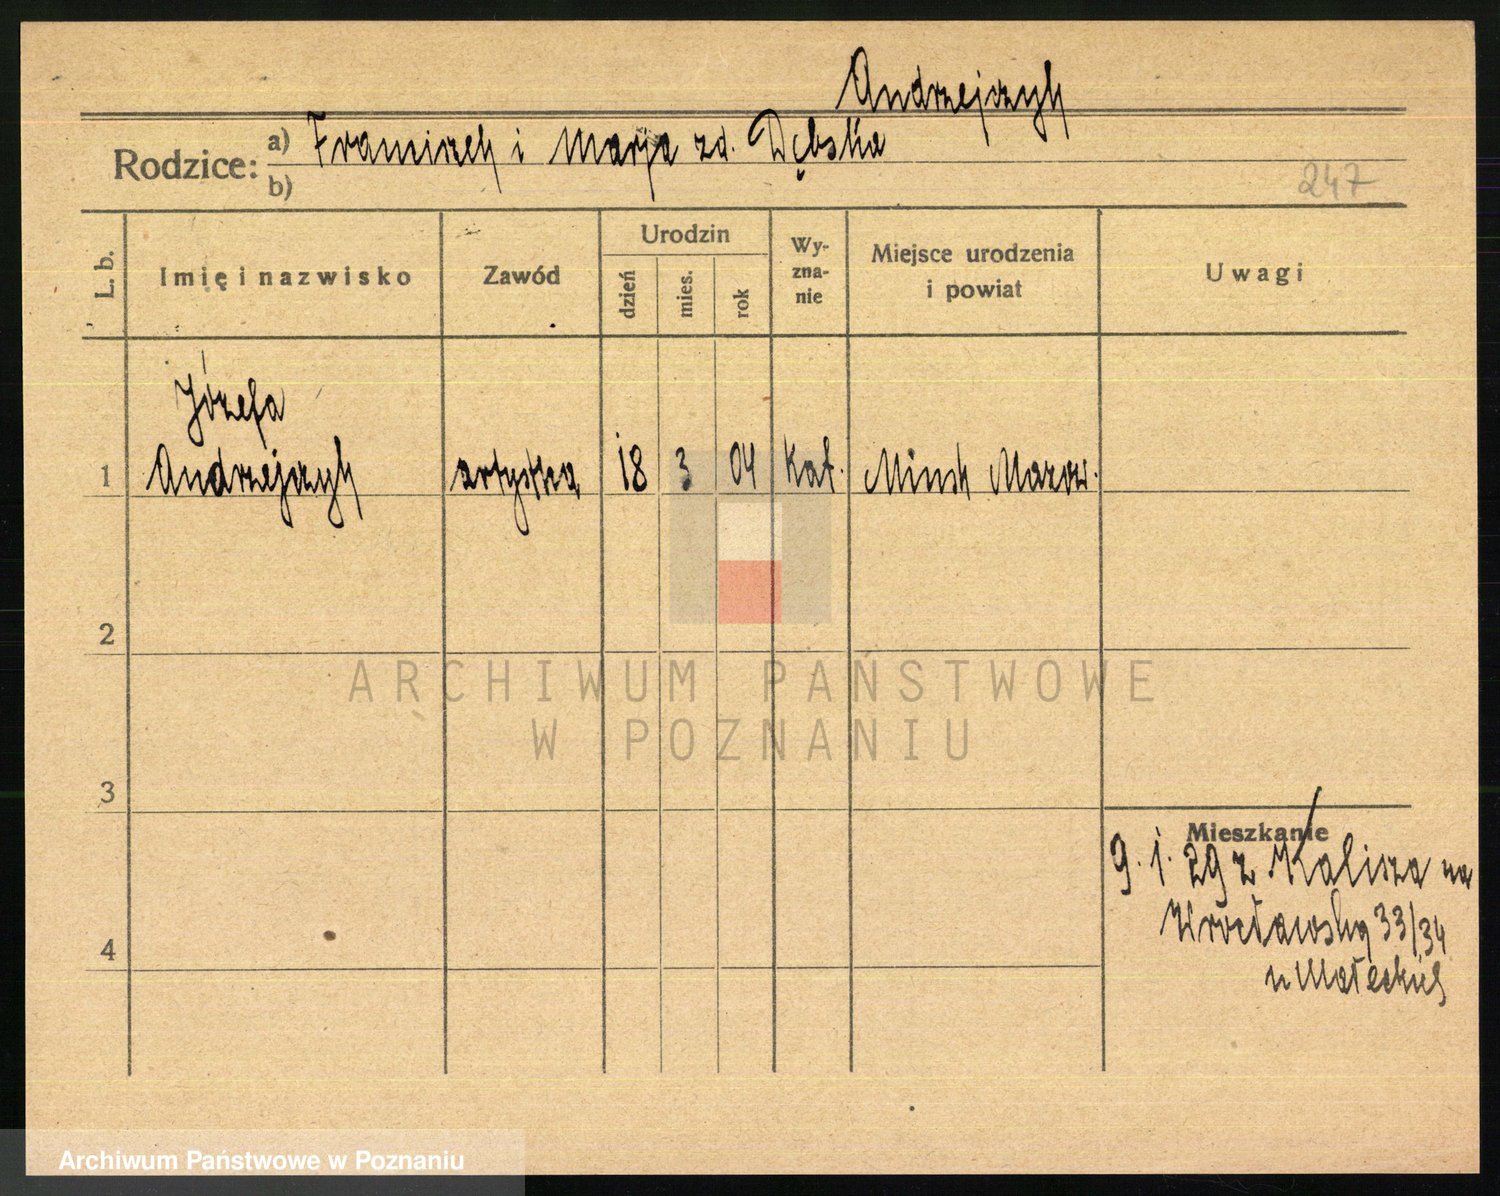 Andrzejczyk
Rodzice: a) Franciszek i Marja zd. Dębska
b)
247
L. b.
Imię i nazwisko
Zawód
Urodzin
dzień
mies.
rok
Wy-
zna-
nie
Miejsce urodzenia
i powiat
Uwagi
Józefa
1 Andrzejczyk artystka 18 3 04 Kat. Mińsk Mazow.
2
ARCHIWUM PAŃSTWOWE
W POZNANIU
3
Mieszkanie
9. 1. 29 z Kalisza na
Wrocławską 33/34
4
u Małeckich
Archiwum Państwowe w Poznaniu